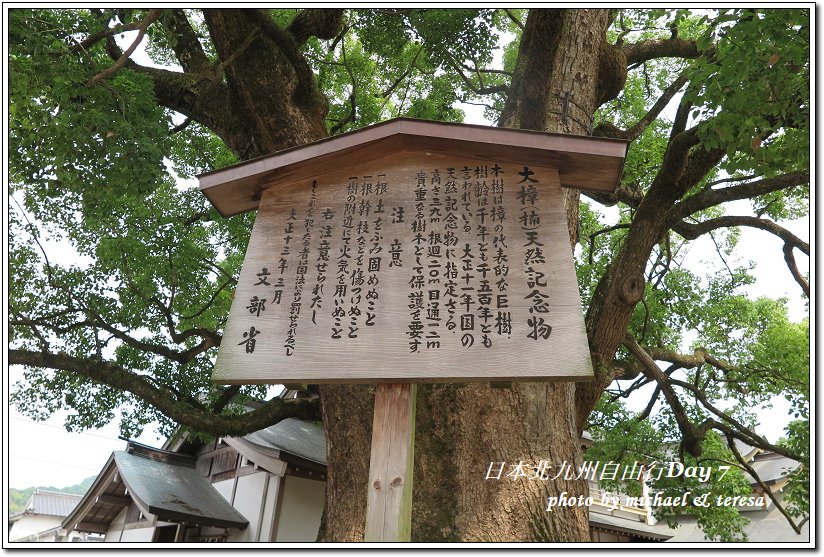 大樟(楠)天然記念物
本樹は樟の代表的な巨樹.
樹齢は千年とも千五百年とも
言われている.大正十一年国の
天然記念物に指定さる.
高さ三九m根廻二〇m目通一二m
貴重なる樹木として保護を要す.
注意
一根土をふみ固めぬこと
一根幹枝などを傷つけぬこと
一樹の附近にて火気を用いぬこと
右注意せられたし
もし之を犯す者は国法に依り罰せられるべし
大正十三年三月
文部省
日本北九州自由行Day 7
photo by michael & teresa